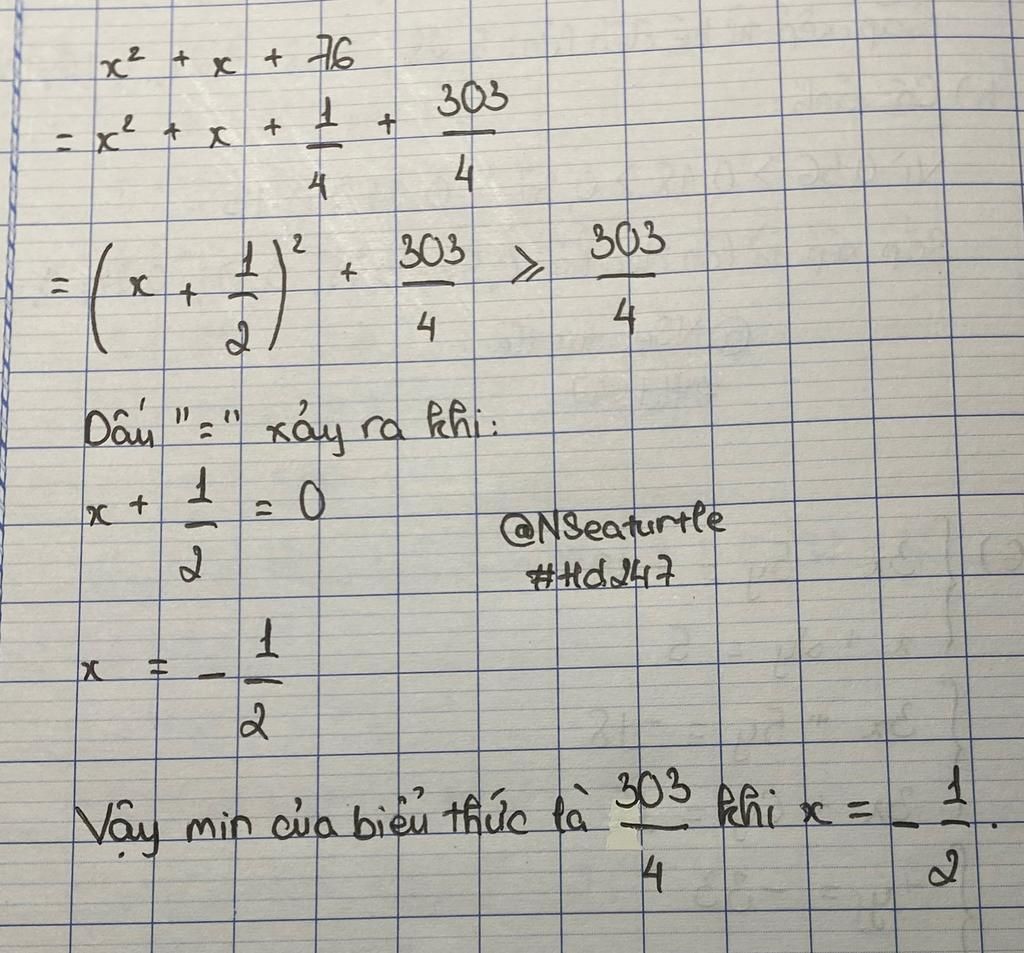 x² + x + 76
= x² + x + 1/4 + 303/4
= (x + 1/2)² + 303/4 ⩾ 303/4
Dấu "=" xảy ra khi:
x + 1/2 = 0
@NSeaturtle
#Hd247
x = - 1/2
Vậy min của biểu thức là 303/4 khi x = - 1/2.